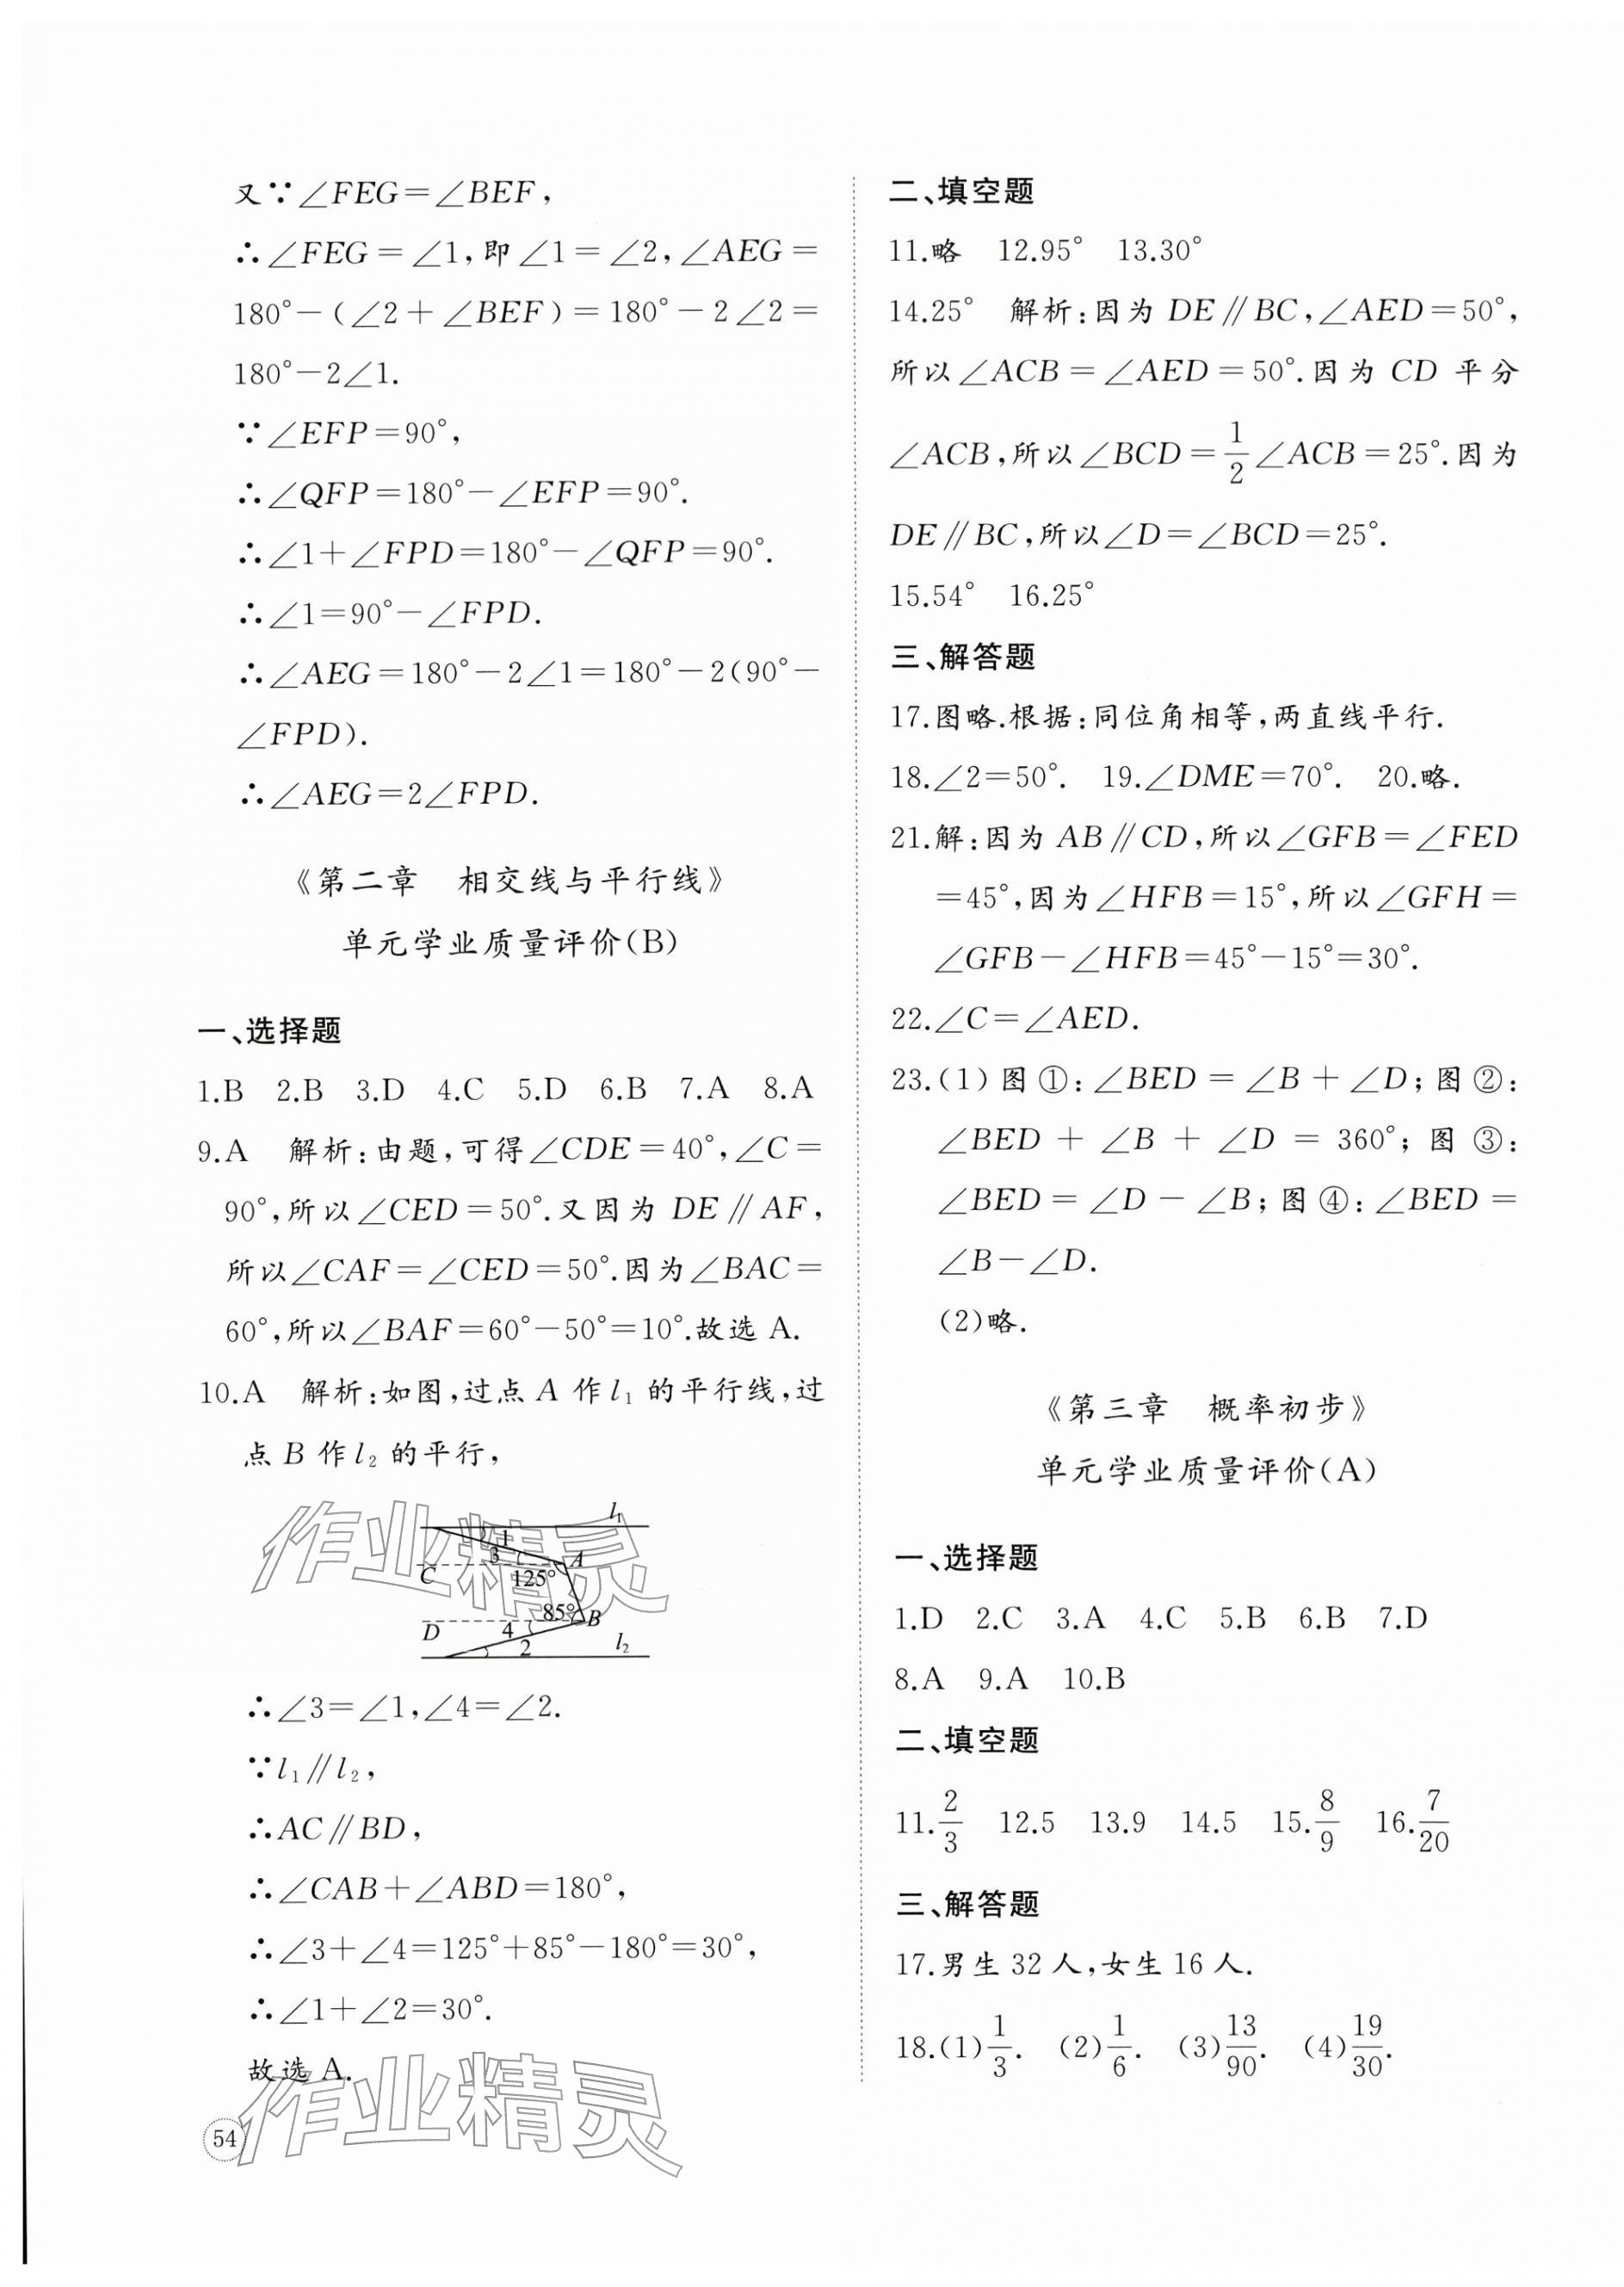 又∵∠FEG=∠BEF,
∴∠FEG=∠1,即∠1=∠2,∠AEG=
180°-(∠2+∠BEF)=180°-2∠2=
180°-2∠1.
∵∠EFP=90°,
∴∠QFP=180°-∠EFP=90°.
∴∠1+∠FPD=180°-∠QFP=90°.
∴∠1=90°-∠FPD.
∴∠AEG=180°-2∠1=180°-2(90°-
∠FPD).
∴∠AEG=2∠FPD.
《第二章 相交线与平行线》
单元学业质量评价(B)
一、选择题
1.B 2.B 3.D 4.C 5.D 6.B 7.A 8.A
9.A 解析:由题,可得∠CDE=40°,∠C=
90°,所以∠CED=50°.又因为 DE∥AF,
所以∠CAF=∠CED=50°.因为∠BAC=
60°,所以∠BAF=60°-50°=10°.故选 A.
10.A 解析:如图,过点 A 作 l₁ 的平行线,过
点 B 作 l₂ 的平行,
l₁
1
3
A
C
125°
85°
B
D
4
2
l₂
作业精灵
∴∠3=∠1,∠4=∠2.
∵l₁∥l₂,
∴AC∥BD,
∴∠CAB+∠ABD=180°,
∴∠3+∠4=125°+85°-180°=30°,
∴∠1+∠2=30°.
故选 A.
作业精灵
54
二、填空题
11.略 12.95° 13.30°
14.25° 解析:因为 DE∥BC,∠AED=50°,
所以∠ACB=∠AED=50°.因为 CD 平分
∠ACB,所以∠BCD=1/2∠ACB=25°.因为
DE∥BC,所以∠D=∠BCD=25°.
15.54° 16.25°
三、解答题
17.图略.根据:同位角相等,两直线平行.
18.∠2=50°. 19.∠DME=70°. 20.略.
21.解:因为 AB∥CD,所以∠GFB=∠FED
=45°,因为∠HFB=15°,所以∠GFH=
∠GFB-∠HFB=45°-15°=30°.
22.∠C=∠AED.
23.(1)图①:∠BED=∠B+∠D;图②:
∠BED+∠B+∠D=360°;图③:
∠BED=∠D-∠B;图④:∠BED=
∠B-∠D.
(2)略.
《第三章 概率初步》
单元学业质量评价(A)
一、选择题
1.D 2.C 3.A 4.C 5.B 6.B 7.D
8.A 9.A 10.B
二、填空题
11.2/3 12.5 13.9 14.5 15.8/9 16.7/20
三、解答题
17.男生 32 人,女生 16 人.
18.(1)1/3. (2)1/6. (3)13/90. (4)19/30.